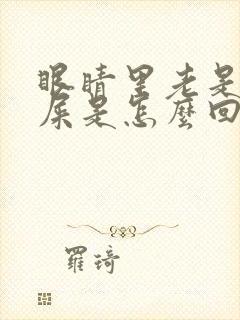 眼睛里老是
屎是怎麼回
羅琦